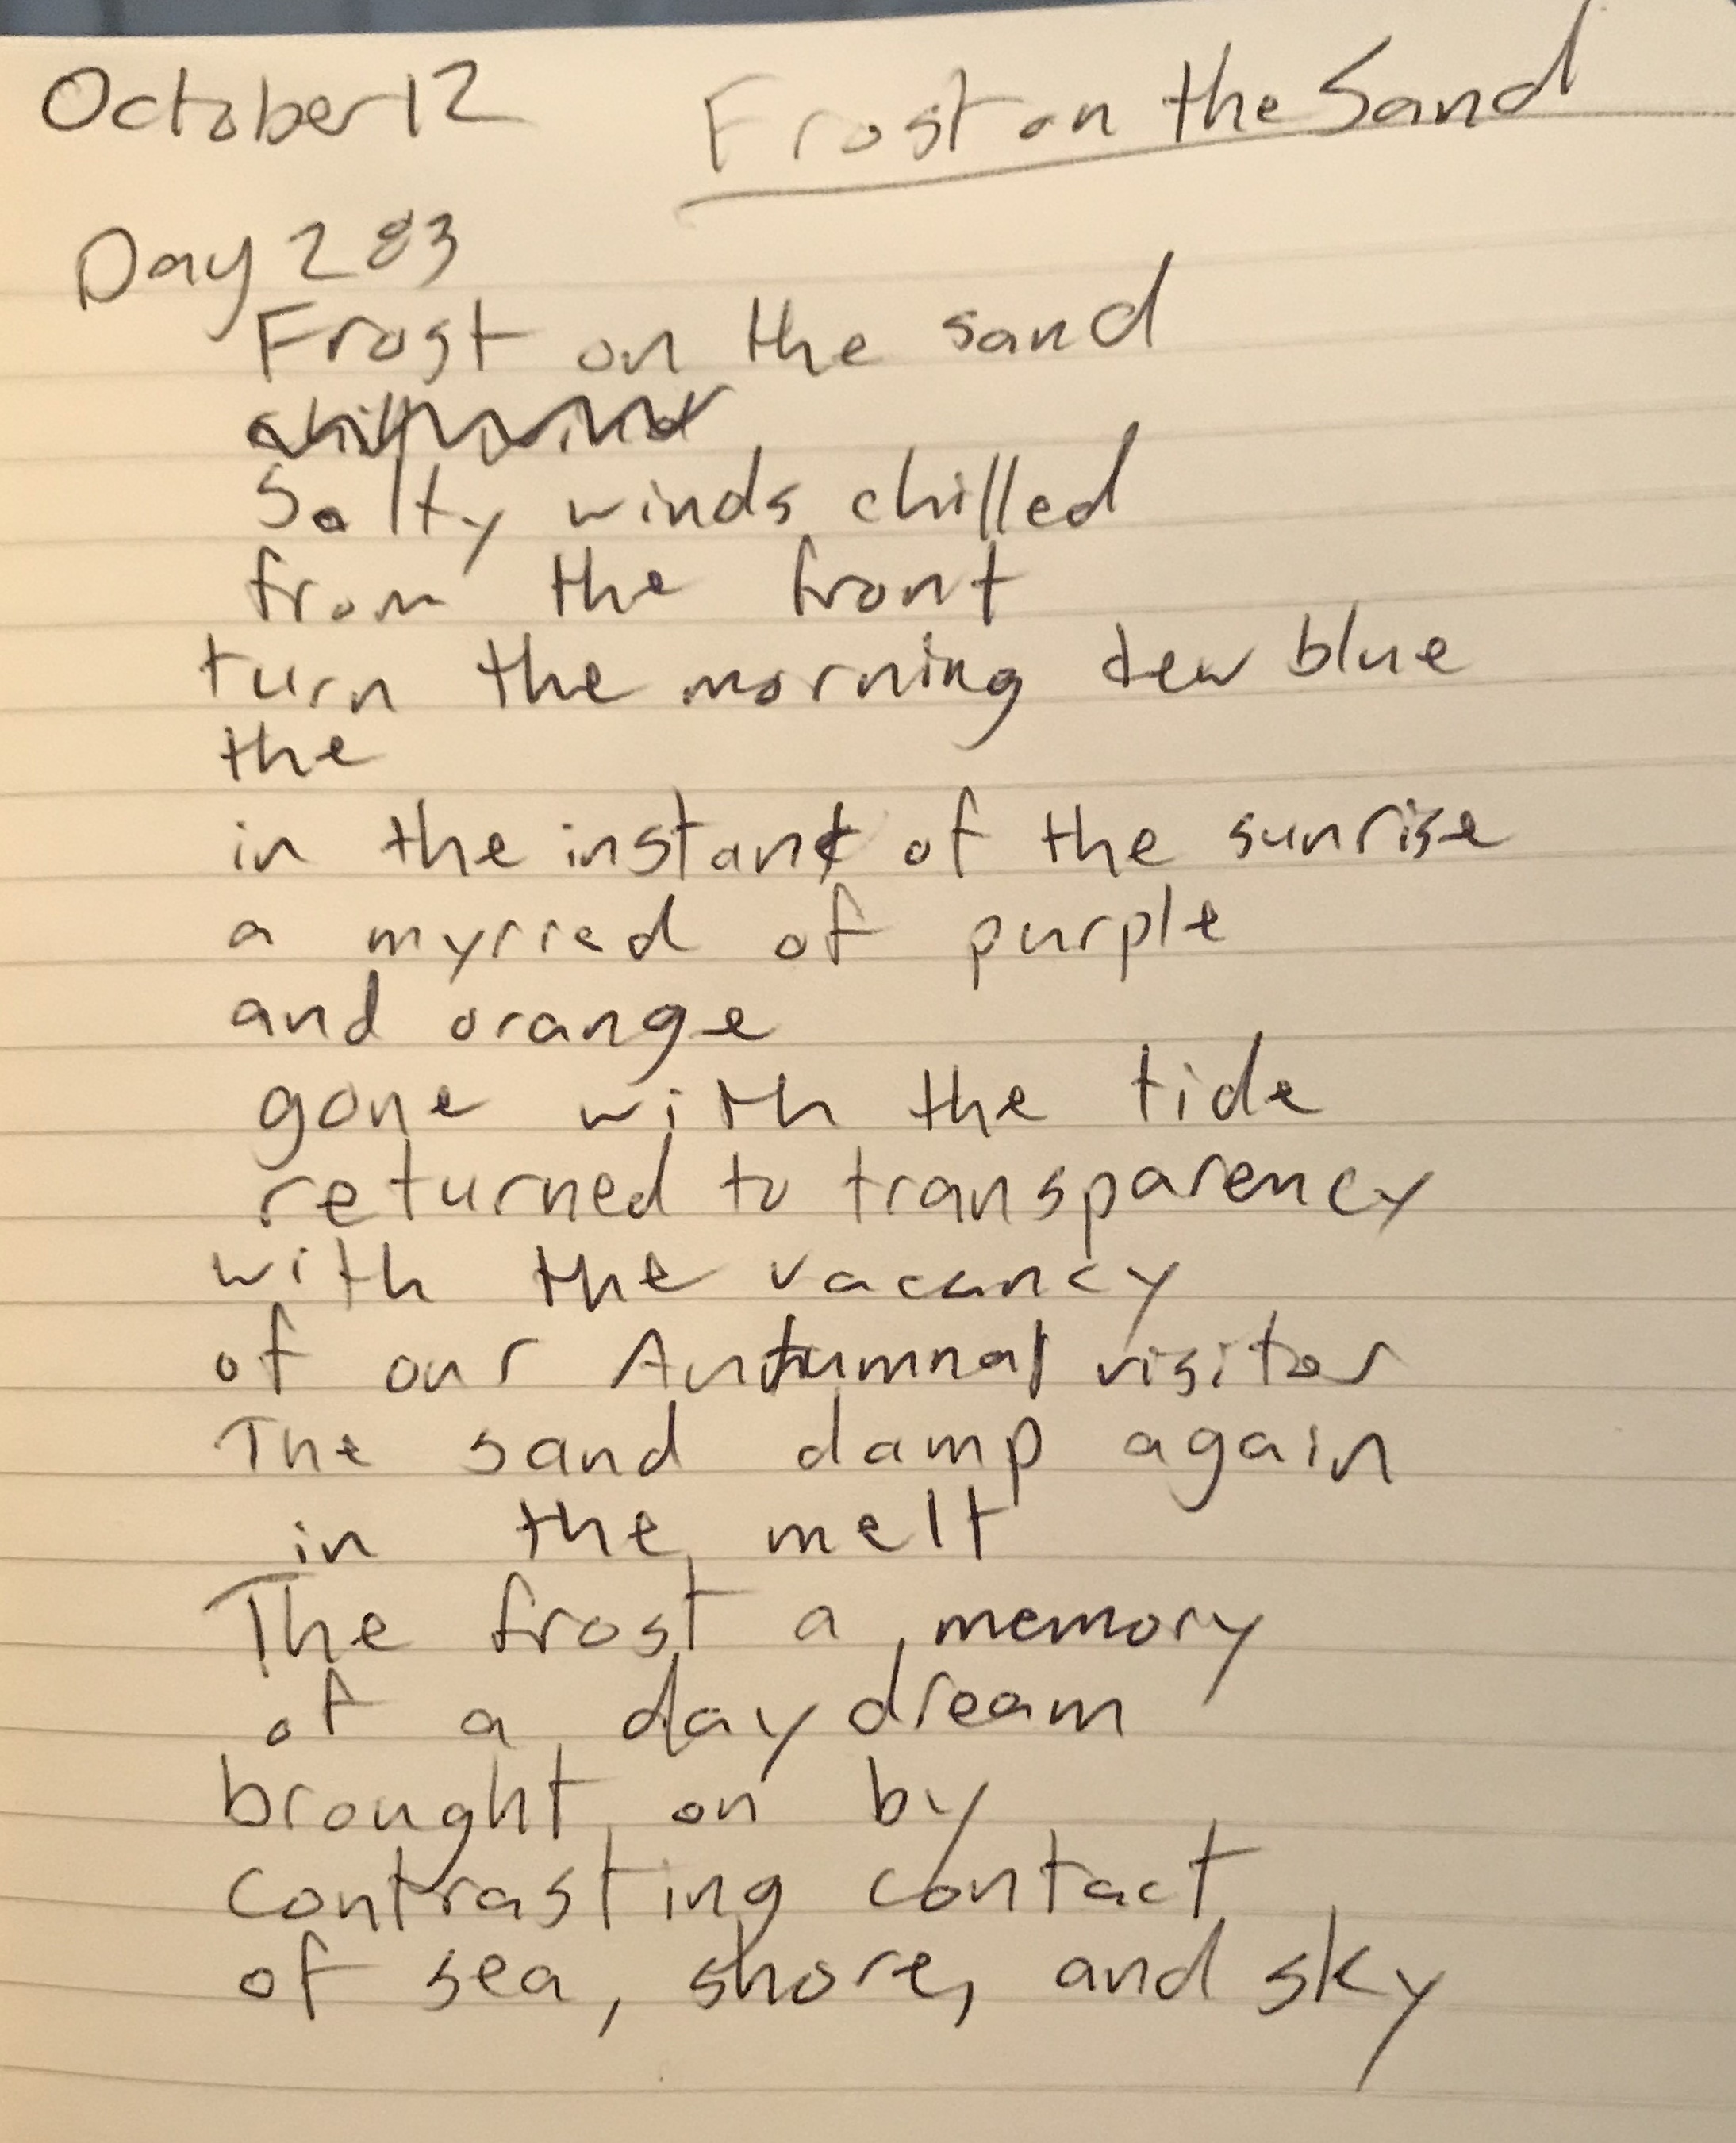 October 12 Frost on the Sand
Day 283
Frost on the sand
Salty winds chilled
from the front
turn the morning dew blue
the
in the instant of the sunrise
a myried of purple
and orange
gone with the tide
returned to transparency
with the vacancy
of our Autumnal visitor
The sand damp again
in the melt
The frost a memory
of a day dream
brought on by
contrasting contact
of sea, shore, and sky